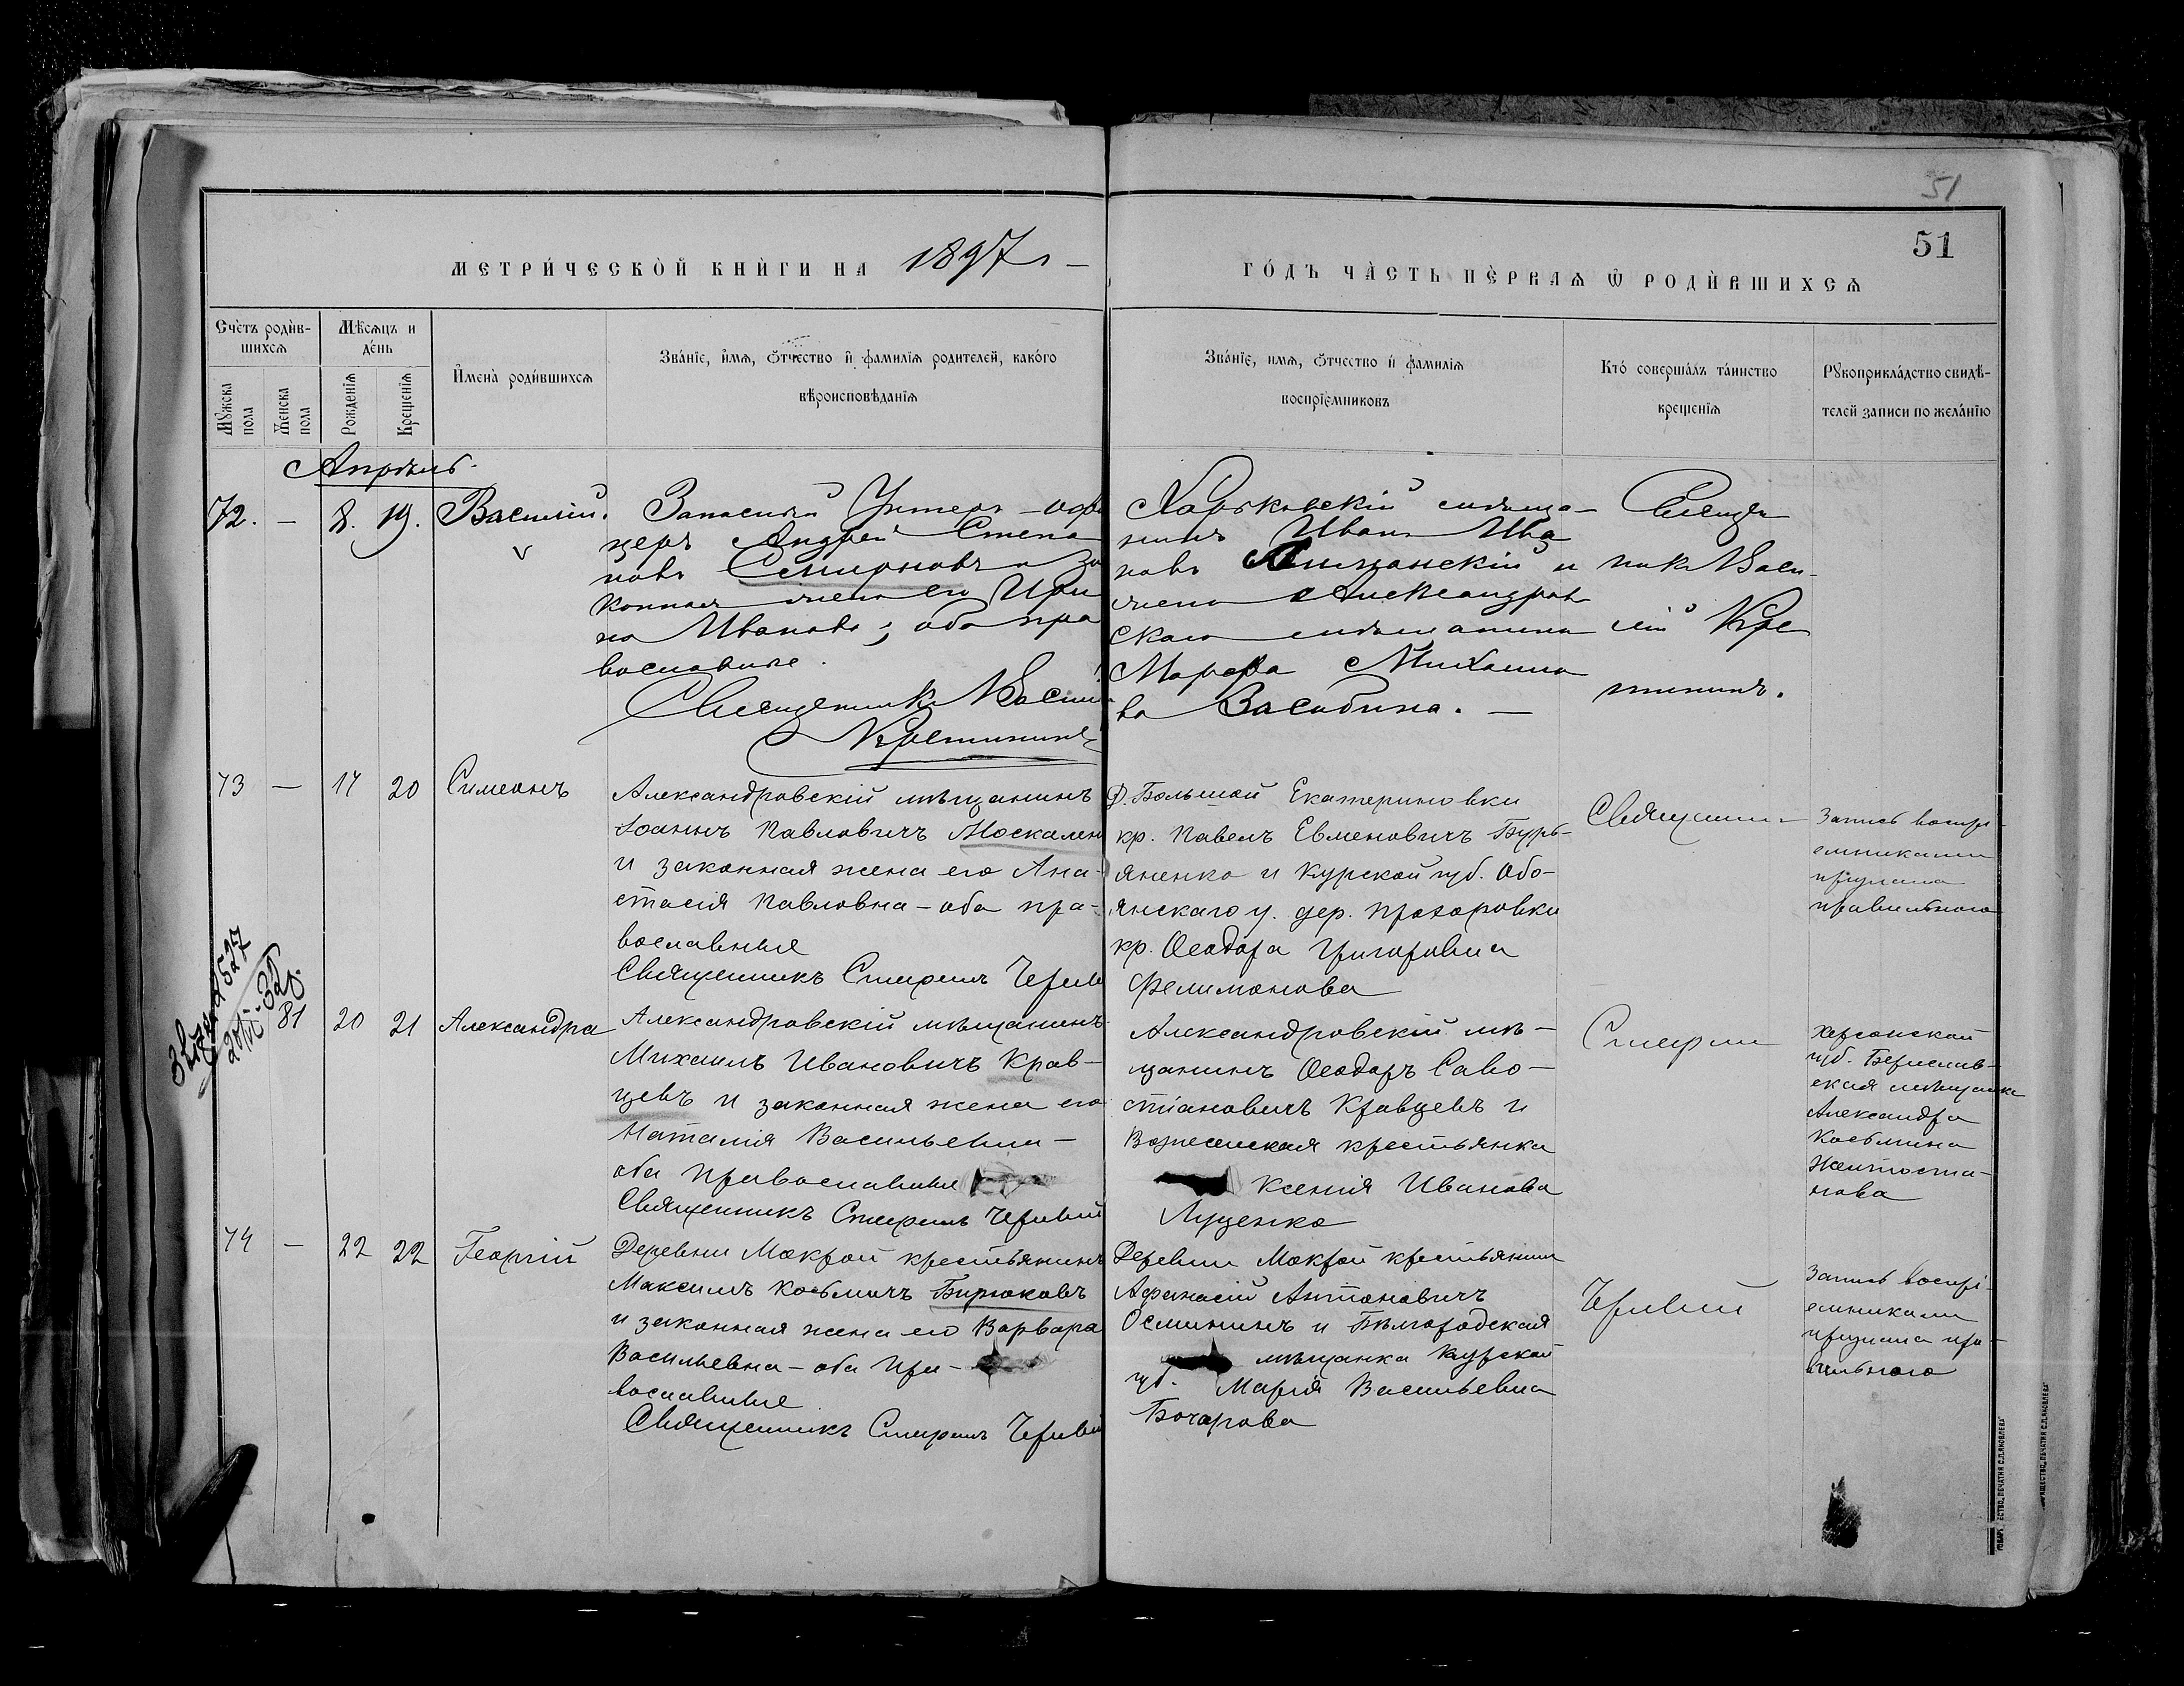 51
51
МЕТРИ́ЧЕСКОЙ КНИ́ГИ НА 1897 г
ГО́ДЪ ЧА́СТЬ ПЕ́РВАѦ Ѿ РОДИ́ВШИХСѦ
Сче́тъ роди́в-
шихсѧ
Мѣ́сѧцъ и
де́нь
Мꙋжска
пола
Женска
пола
Рожденїѧ
Крещенїѧ
Имена̀ роди́вшихсѧ
Зва́нїе, и́мѧ, ѻ҆́тчество и҆ фамилїѧ родителей, како́го
вѣроисповѣданїѧ
Зва́нїе, имѧ, ѻ҆́тчество и҆ фамилїѧ
воспрїемниковъ
Кто́ совершалъ та́инство
крещенїѧ
Рꙋкоприкла́дство свидѣ́-
телей записи по жела́нїю
Апрѣль.
72. – 8. 19. Василій.
Запасный Унтеръ-офи
церъ Андрей Степа
новъ Смирновъ и за
конная жена его Ири
на Иванова; оба пра
вославные.
Священникъ Василій
Кретининъ
Харьковскій мѣща-
нинъ Иванъ Ива
новъ и
жена Александров
скаго мѣщанина
Марфа Михаило
ва Засобина. –
Священ
никъ Васи-
лій Кре
тининъ.
73 – 17 20 Симеонъ
Александровскій мѣщанинъ
Іоаннъ Павловичъ Москален
и законная жена его Ана-
стасія Павловна – оба пра-
вославные
Священникъ Спиридонъ Черв
Д. Большой Екатериновки
кр. Павелъ Евменовичъ Бурь-
яненко и Курской губ. Обо-
янскаго у. дер. Прохоровки
кр. Ѳеодора Григорьевна
Филимонова
Священник
Запись воспрі-
емниками
признана
правильною
81 20 21 Александра
Александровскій мѣщанинъ
Михаилъ Ивановичъ Крав-
цевъ и законная жена его
Наталія Васильевна –
оба православные
Священникъ Спиридонъ Червый
Александровскій мѣ-
щанинъ Ѳеодоръ Саво-
стіановичъ Кравцевъ и
Вознесенская крестьянка
Ксенія Иванова
Луценко
Херсонской
губ. Берислав-
ская мѣщанка
Александра
Косьмина
74 – 22 22 Георгій
Деревни Мокрой крестьянинъ
Максимъ Косьмичъ Бирюковъ
и законная жена его Варвара
Васильевна – оба пра-
вославные
Священникъ Спиридонъ Червы
Деревни Мокрой крестьянин
Афанасій Антоновичъ
Осмининъ и Бѣлгородская
мѣщанка Курской
губ. Марія Васильевна
Бочарова
Червый
Запись воспрі-
емниками
признана пра-
вильною